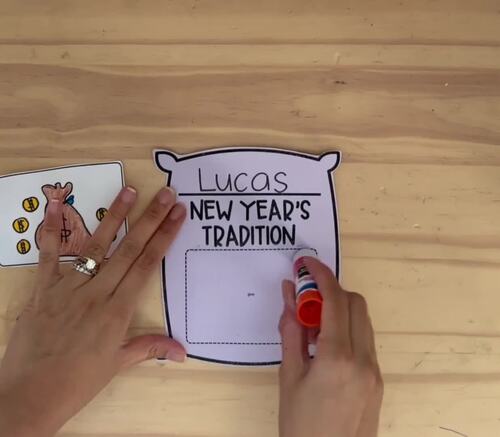 Lucas
NEW YEAR'S
TRADITION
$